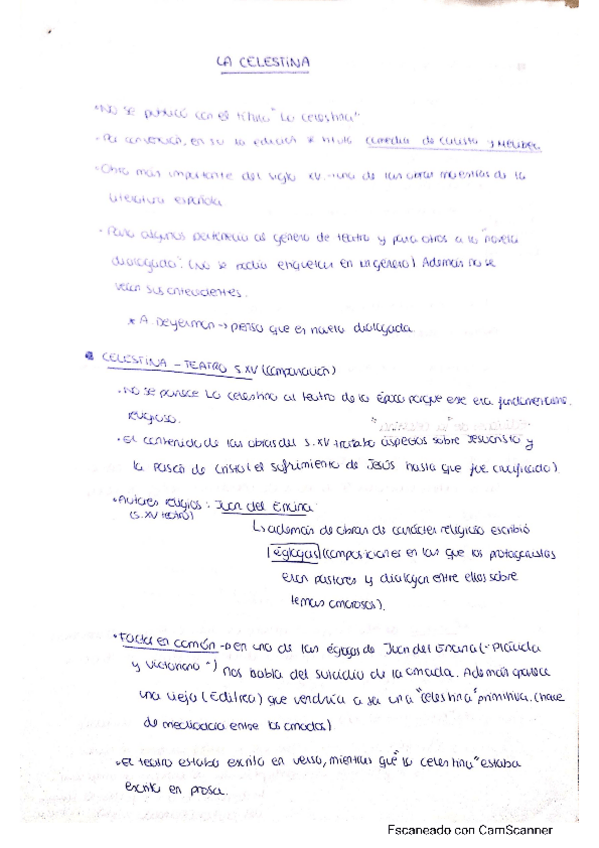 LA CELESTINA
• No se publicó con el título "La celestina"
• Por convención, en su 1a edición * título comedia de Calisto y Melibea
• Obra más importante del siglo XV. → una de las obras maestras de la
literatura española
• Para algunos pertenecía al género de teatro y para otros a la "novela
dialogada". (No se podía etiquetar en un género) Además no se
veían sus antecedentes.
* A. Deyermon → pensa que es novela dialogada.
CELESTINA – TEATRO S.XV (comparación)
• No se parece La celestina al teatro de la época porque ese era fundamentalm.
religioso.
• El contenido de las obras del S.XV trataba aspectos sobre Jesucristo y
la Pasión de Cristo (el sufrimiento de Jesús hasta que fue crucificado)
• Autores religios: Juan del Encina
(S.XV teatro)
↳ además de obras de carácter religioso escribió
églogas (composiciones en las que los protagonistas
eran pastores y dialogan entre ellos sobre
temas amorosos).
• Factor en común → en una de las églogas de Juan del Encina ("Plácida
y Victoriano") nos habla del suicidio de la amada. Además aparece
una vieja (Eritrea) que vendría a ser una "celestina" primitiva. (hace
de mediadora entre los amados)
• El teatro estaba escrito en verso, mientras que "la celestina" estaba
escrita en prosa.
Escaneado con CamScanner